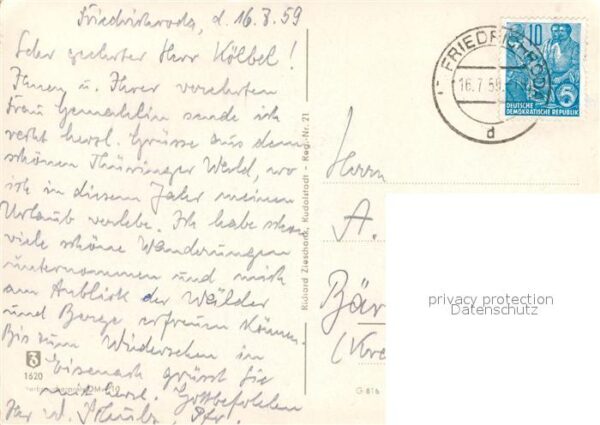 Friedrichroda, d. 16.7.59
Sehr geehrter Herr Kölbel!
Ihnen u. Ihrer verehrten
Frau Gemahlin sende ich
recht herzl. Grüsse aus dem
schönen Thüringer Wald, wo
ich in diesem Jahr meinen
Urlaub verlebe. Ich habe schon
viele schöne Wanderungen
unternommen und mich
am Anblick der Wälder
und Berge erfreuen können.
Bis zum Wiedersehen in
Eisenach grüsst Sie
herzl. Gottbefohlen
Ihr W. Pfr.
1620
Richard Zieschank, Rudolstadt - Reg.-Nr. 21
G 816
FRIEDRICHRODA
16.7.59
d
10
5
DEUTSCHE
DEMOKRATISCHE REPUBLIK
Herrn
A.
Bär
(Kre
privacy protection
Datenschutz